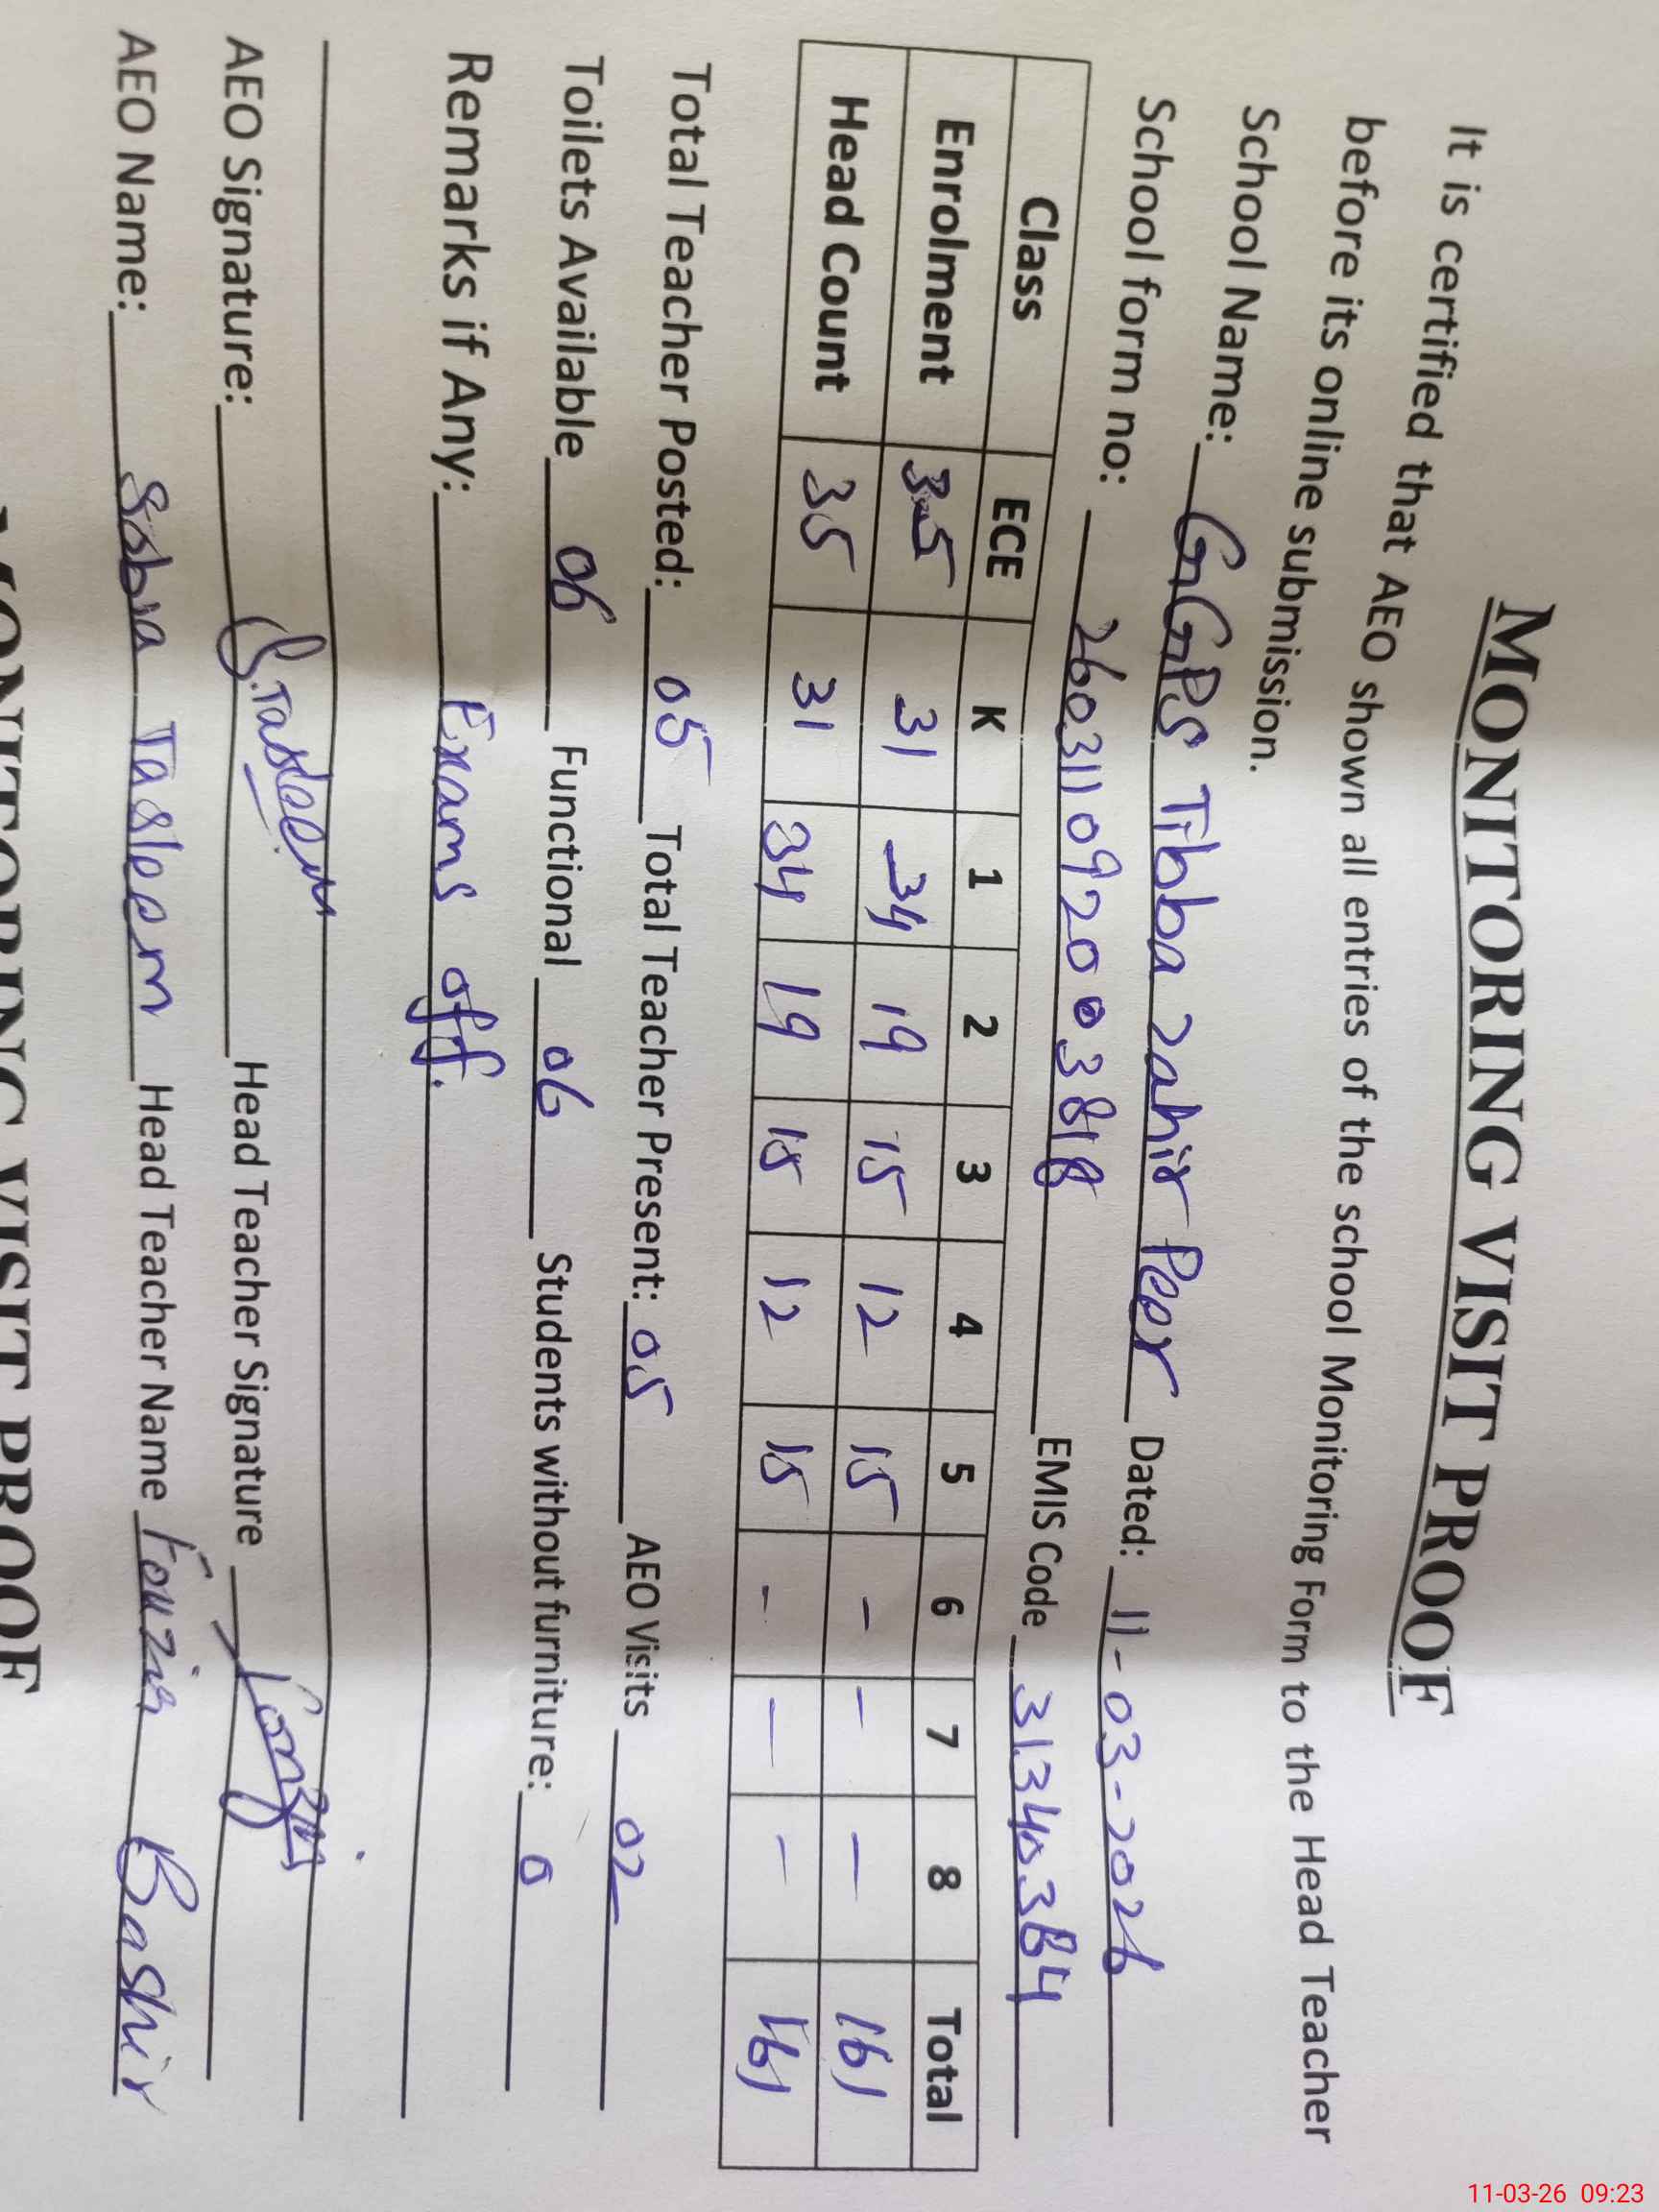 MONITORING VISIT PROOF
It is certified that AEO shown all entries of the school Monitoring Form to the Head Teacher
before its online submission.
School Name: GGPS Tibba Zahir Peer Dated: 11-03-2026
School form no: 2603110920003818 EMIS Code 31340384
Class ECE K 1 2 3 4 5 6 7 8 Total
Enrolment 35 31 34 19 15 12 15 - - - 161
Head Count 35 31 34 19 15 12 15 - - - 161
Total Teacher Posted: 05 Total Teacher Present: 05 AEO Visits 02
Toilets Available 06 Functional 06 Students without furniture: 0
Remarks if Any: Exams off.
AEO Signature: S.Tasleem Head Teacher Signature Fouzia
AEO Name: Sobia Tasleem Head Teacher Name Fouzia Bashir
MONITORING VISIT PROOF
11-03-26 09:23